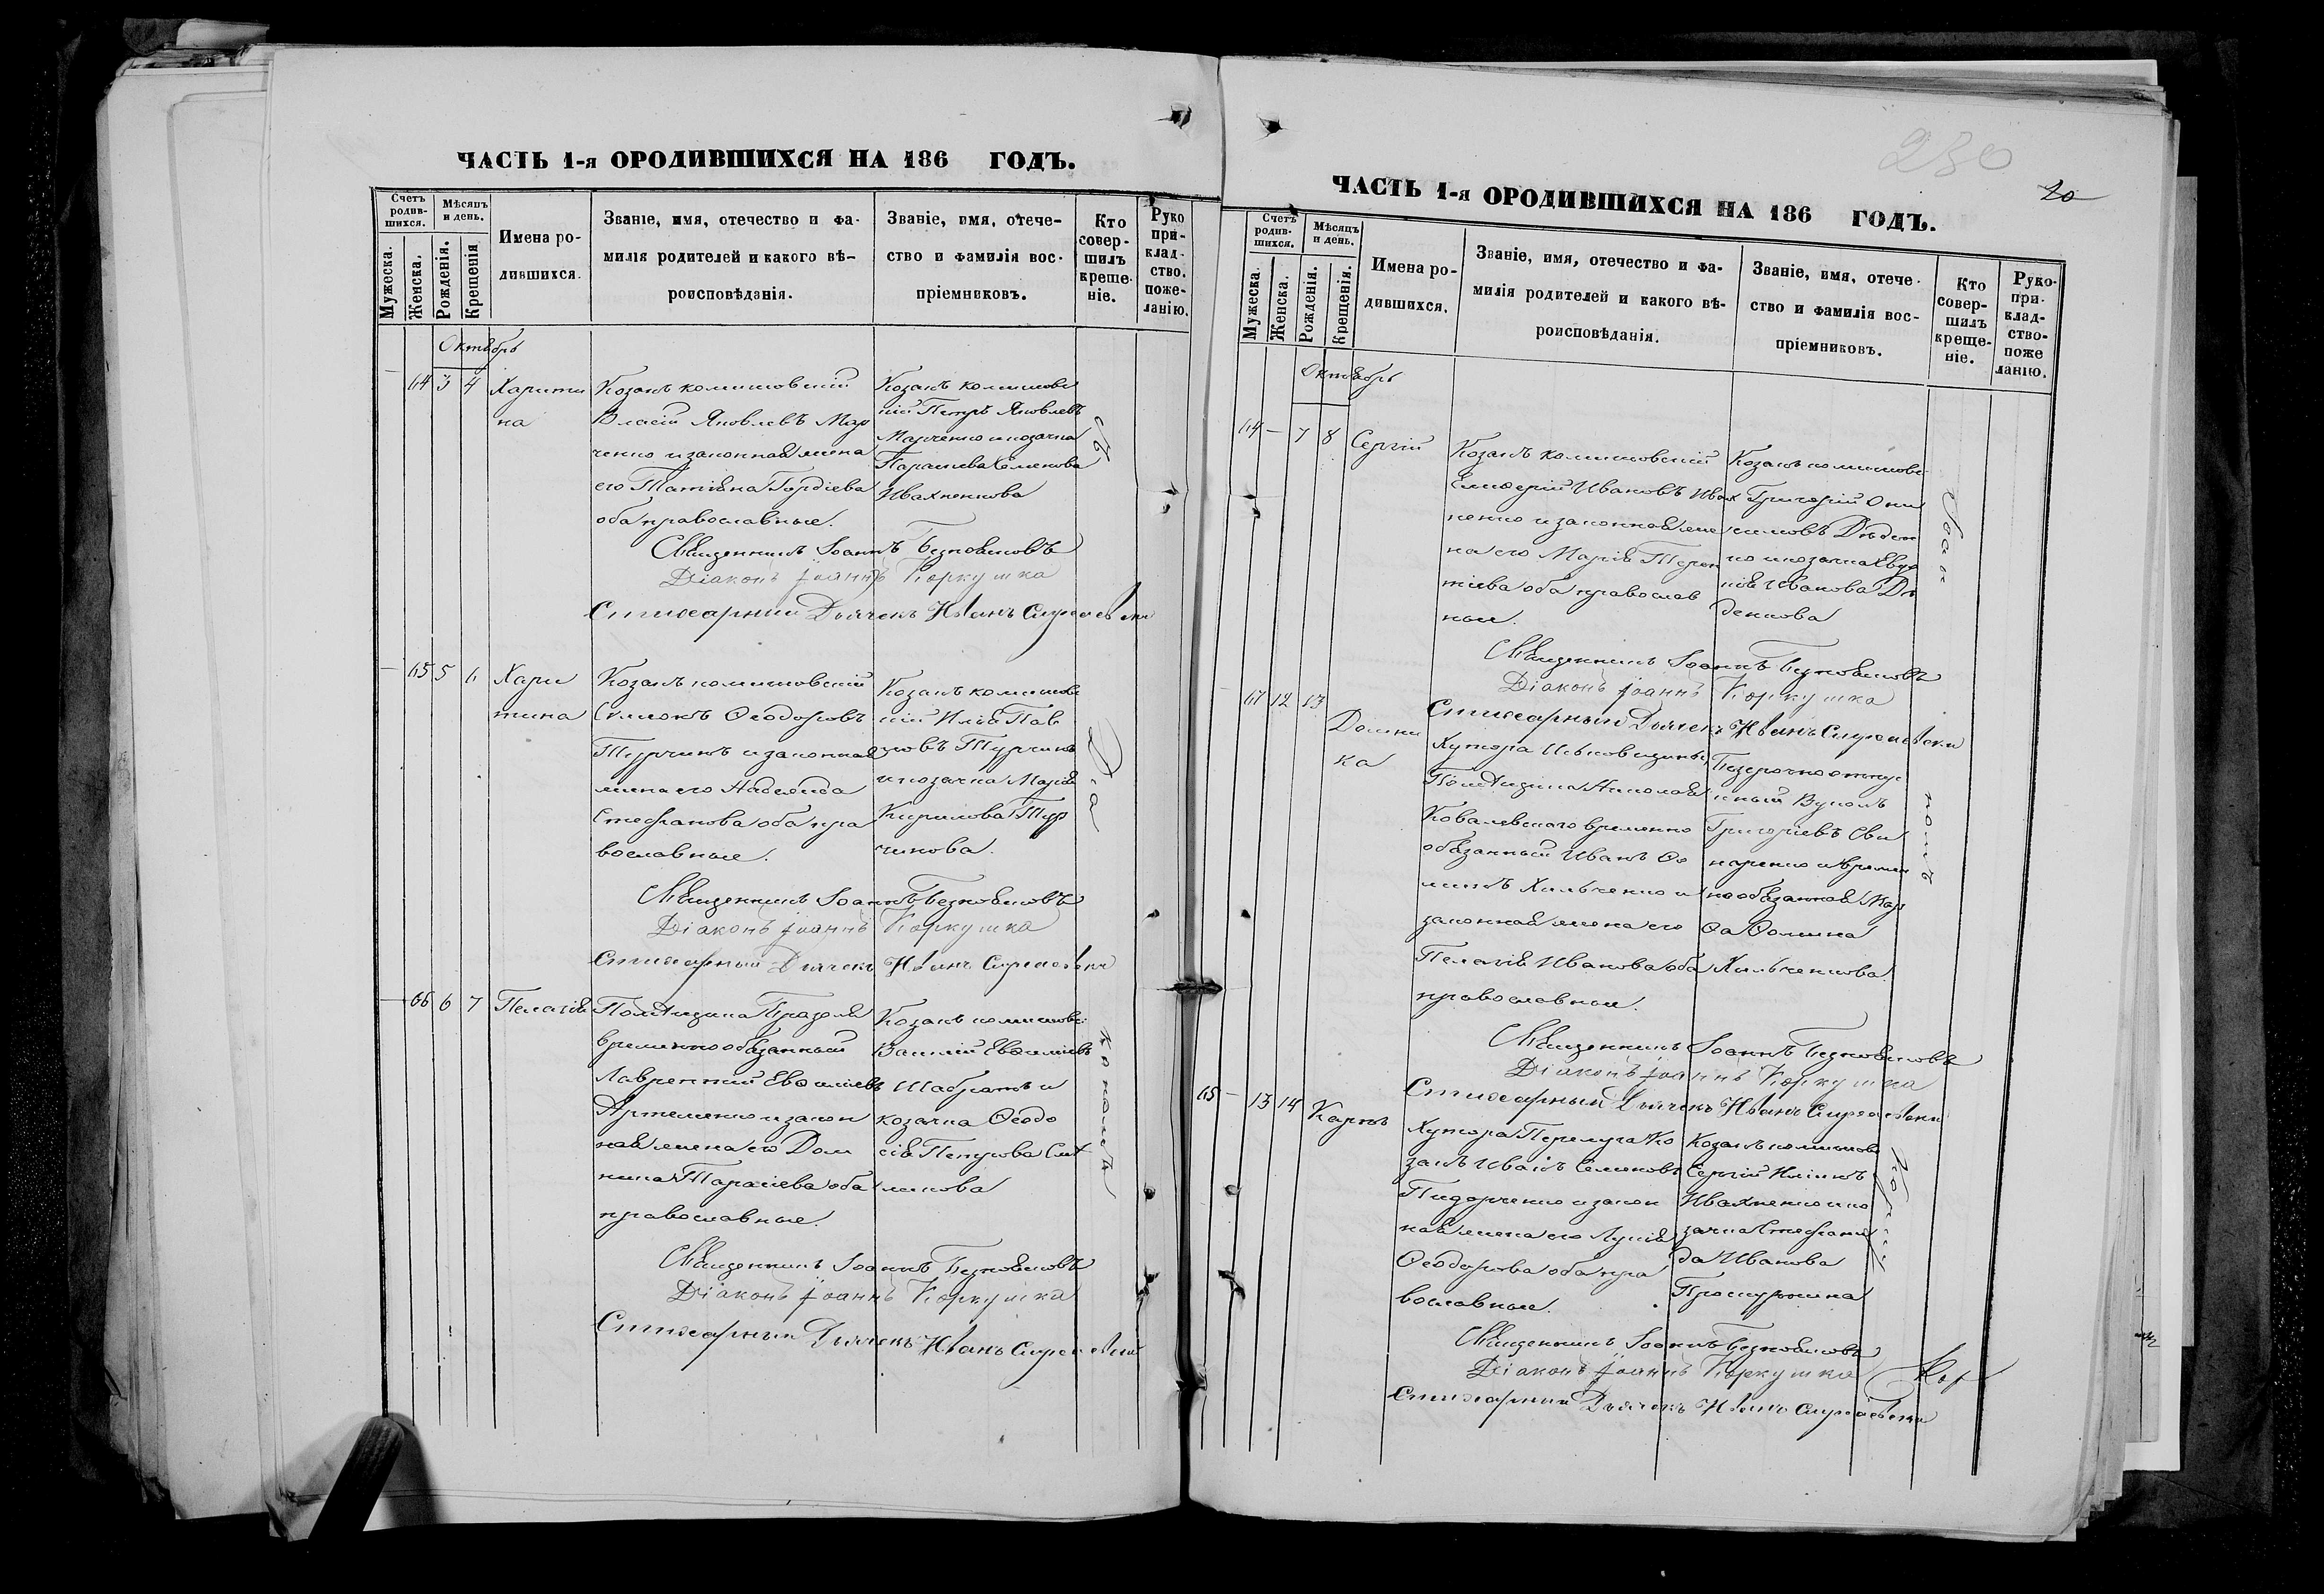 ЧАСТЬ 1-я ОРОДИВШИХСЯ НА 186 ГОДЪ.
Счетъ родив-шихся.
Мѣсяцъ и день.
Мужеска.
Женска.
Рожденія.
Крещенія
Имена ро-
дившихся.
Званіе, имя, отечество и фа-
милія родителей и какого вѣ-
роисповѣданія.
Званіе, имя, отече-
ство и фамилія вос-
пріемниковъ.
Кто
совер-
шилъ
креще-
ніе.
Руко
при-
клад-
ство.
поже-
ланію.
Октябрь
— 64 3 4 Харити
на
Козакъ комишовскій
Власій Яковлевъ Мар
ченко и законная жена
его Татіяна Гордіева
оба православные.
Козакъ комишовс
кій Петръ Яковлевъ
Марченко и козачка
Параскева Семенова
Ивахненкова
Священникъ Іоаннъ
Діаконъ Іоаннъ Коркушка
Стихарный Дьячекъ Иванъ
— 65 5 6 Хари
тина
Козакъ комишовскій
Симеонъ Ѳеодоровъ
Турчинъ и законная
жена его Надежда
Стефанова оба пра
вославные.
Козакъ комишовс
кій Илія Пав
ловъ Турчинъ
и козачка Марія
Кирилова Тур
чинова.
Священникъ Іоаннъ
Діаконъ Іоаннъ Коркушка
Стихарный Дьячекъ Иванъ
— 66 6 7 Пелагія
Помѣщика
временнообязанный
Лаврентий Евѳиміевъ
Артеменко и закон
ная жена его Дом
ника Тарасіева оба
православные.
Козакъ комишовс
Василій Евѳиміевъ
Шабратъ и
козачка Ѳеодо
сія Петрова
Священникъ Іоаннъ
Діаконъ Іоаннъ Коркушка
Стихарный Дьячекъ Иванъ
230
20
ЧАСТЬ 1-я ОРОДИВШИХСЯ НА 186 ГОДЪ.
Счетъ родив-шихся.
Мѣсяцъ и день.
Мужеска.
Женска.
Рожденія.
Крещенія.
Имена ро-
дившихся.
Званіе, имя, отечество и фа-
милія родителей и какого вѣ-
роисповѣданія.
Званіе, имя, отече-
ство и фамилія вос-
пріемниковъ.
Кто
совер-
шилъ
креще-
ніе.
Руко-
при-
клад-
ство-
поже
ланію.
Октябрь
64 — 7 8 Сергій
Козакъ комишовскій
Елиѳерій Ивановъ Ивах
ненко и законная же
на его Марія Терен
тіева оба православ
ные.
Козакъ комишовс
Григорій Они
симовъ Дѣден
ко и козачка Евдо
кія Иванова Дѣ
денкова
Священникъ Іоаннъ
Діаконъ Іоаннъ Коркушка
Стихарный Дьячекъ Иванъ
67 12 13
Домни
ка
Хутора
Помѣщика Николая
Ковалевского временно
обязанный Иванъ Ѳо
минъ Хильченко и
законная жена его
Пелагія Иванова оба
православные.
Безсрочно отпус
кный Вуколъ
Григоріевъ Сви
наренко и времен
нообязанная Мар
ѳа Ѳомина
Хильченкова
Священникъ Іоаннъ
Діаконъ Іоаннъ Коркушка
Стихарный Дьячекъ Иванъ
65 — 13 14 Карпъ
Хутора Перелуга Ко
закъ Иванъ Семеновъ
Пидорченко и закон
ная жена его Лукія
Ѳеодорова оба пра
вославные.
Козакъ комишовс
Сергій Ильинъ
Ивахненко и ко
зачка Стефани
да Иванова
Проскурнина
Священникъ Іоаннъ
Діаконъ Іоаннъ Коркушка
Стихарный Дьячекъ Иванъ